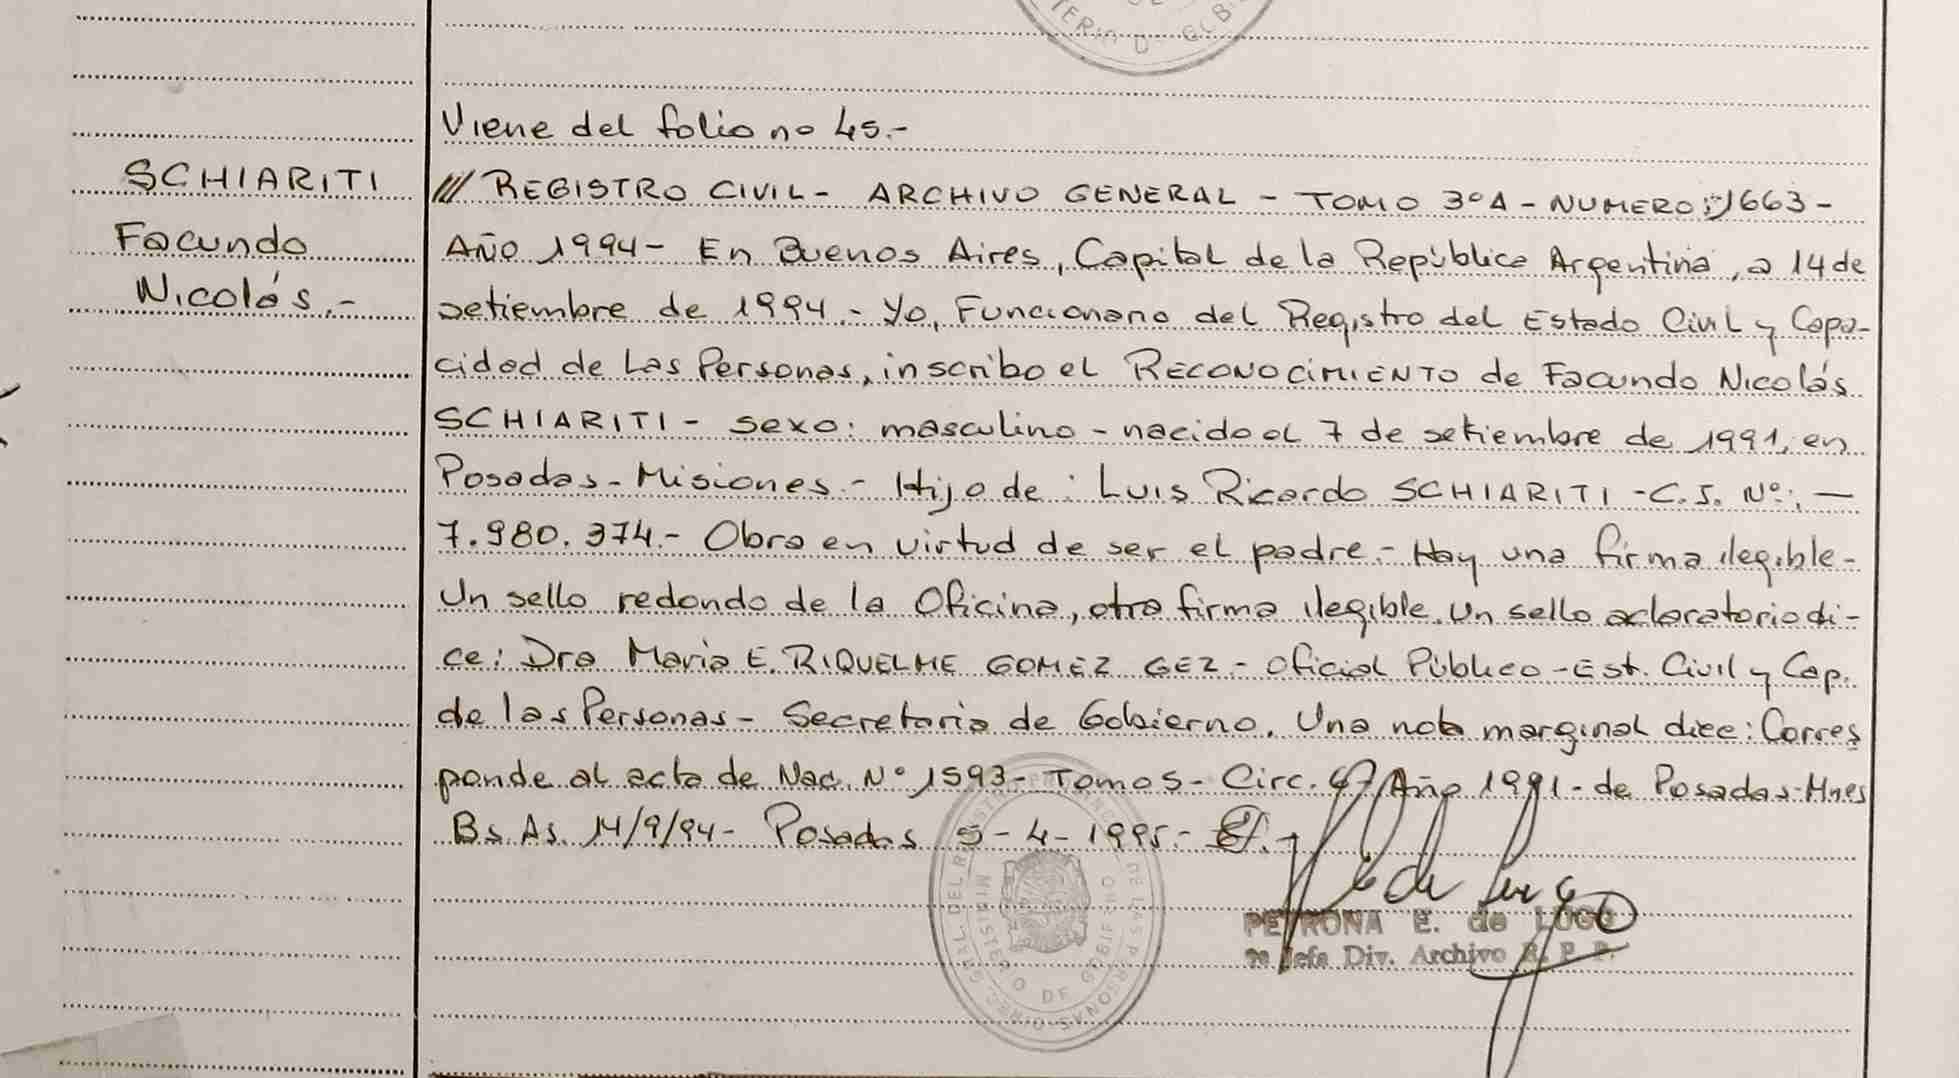 TERIO D- GOB
Viene del folio no 45.-
SCHIARITI
Facundo
Nicolás.-
/// REGISTRO CIVIL- ARCHIVO GENERAL - TOMO 3º A - NUMERO: 1663 -
AÑO 1994- En Buenos Aires, Capital de la República Argentina, a 14 de
setiembre de 1994.- Yo, Funcionario del Registro del Estado Civil y Capa-
cidad de Las Personas, inscribo el RECONOCIMIENTO de Facundo Nicolás
SCHIARITI - sexo: masculino - nacido el 7 de setiembre de 1991, en
Posadas - Misiones.- Hijo de: Luis Ricardo SCHIARITI - C.I. Nº: —
7.980.374.- Obra en virtud de ser el padre.- Hay una firma ilegible-
Un sello redondo de la Oficina, otra firma ilegible. Un sello aclaratorio di-
ce: Dra Maria E. RIQUELME GOMEZ GEZ - Oficial Público - Est. Civil y Cap.
de las Personas - Secretaria de Gobierno. Una nota marginal dice: Corres
ponde al acta de Nac. Nº 1593- Tomo 5 - Circ. Año 1991 - de Posadas- Mnes
Bs. As. 14/9/94- Posadas 5-4-1995.-
PETRONA E. de LUGO
Jefa Div. Archivo R. P. P.
MINISTERIO DE GOBIERNO
DE LAS PERSONAS